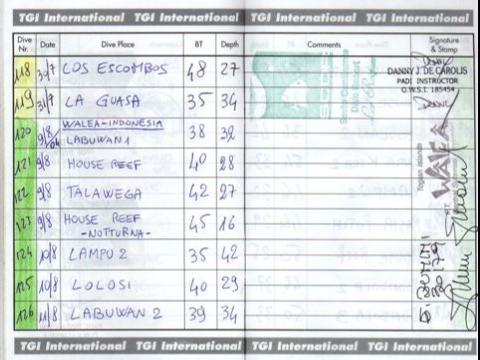 TGI International TGI International TGI International TGI International
Dive Nr. Date Dive Place BT Depth Comments Signature & Stamp
118 30/7 LOS ESCOMBOS 48 27
DANNY J. DE CAROLIS
PADI INSTRUCTOR
O.W.S.I. 185454
119 31/7 LA GUASA 35 34
120 9/8/04 WALEA-INDONESIA
LABUWAN 1 38 32
121 9/8 HOUSE REEF 40 28
122 9/8 TALAWEGA 42 27
123 9/8 HOUSE REEF
-NOTTURNA- 45 16
124 10/8 LAMPU 2 35 42
125 10/8 LOLOSI 40 29
126 11/8 LABUWAN 2 39 34
Togian Islands
WALEA
TGI International TGI International TGI International TGI International